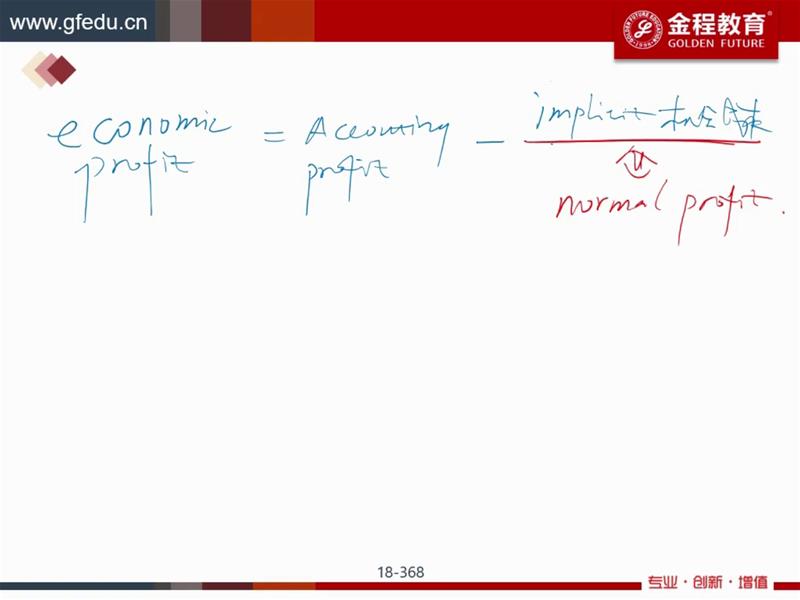 www.gfedu.cn
金程教育
GOLDEN FUTURE
economic = Accounting - implicit 机会成本
profit profit
normal profit.
18-368
专业·创新·增值